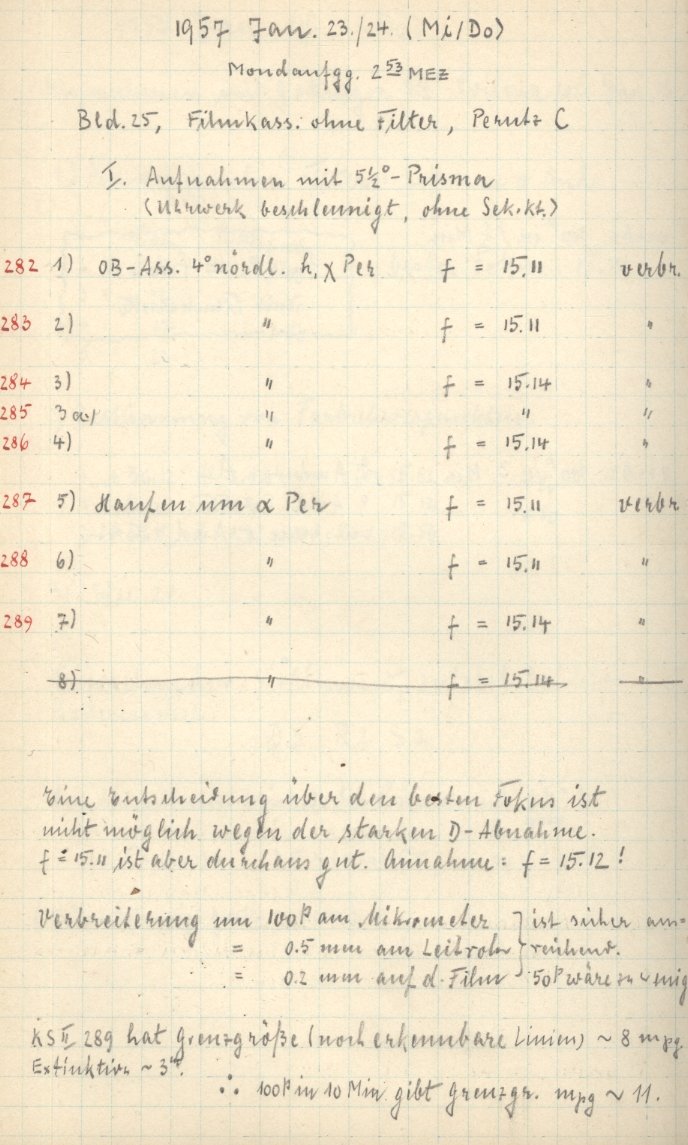 1957 Jan. 23./24. (Mi/Do)
Mondaufgg. 2⁵³ MEZ
Bld. 25, Filmkass. ohne Filter, Perutz C
I. Aufnahmen mit 5½°-Prisma
(Uhrwerk beschleunigt, ohne Sek.kt.)
282 1) OB-Ass. 4° nördl. h, χ Per f = 15.11 verbr.
283 2) " f = 15.11 "
284 3) " f = 15.14 "
285 3a) " " "
286 4) " f = 15.14 "
287 5) Haufen um α Per f = 15.11 verbr
288 6) " f = 15.11 "
289 7) " f = 15.14 "
8) " f = 15.14 "
Eine Entscheidung über den besten Fokus ist
nicht möglich wegen der starken D-Abnahme.
f = 15.11 ist aber durchaus gut. Annahme: f = 15.12!
Verbreiterung um 100p am Mikrometer ist sicher aus=
= 0.5 mm am Leitrohr reichend.
= 0.2 mm auf d. Film 50p wäre zu wenig
KS II 289 hat Grenzgröße (noch erkennbare Linien) ~ 8 mpg.
Extinktion ~ 3ᵐ.
∴ 100p in 10 Min gibt Grenzgr. mpg ~ 11.